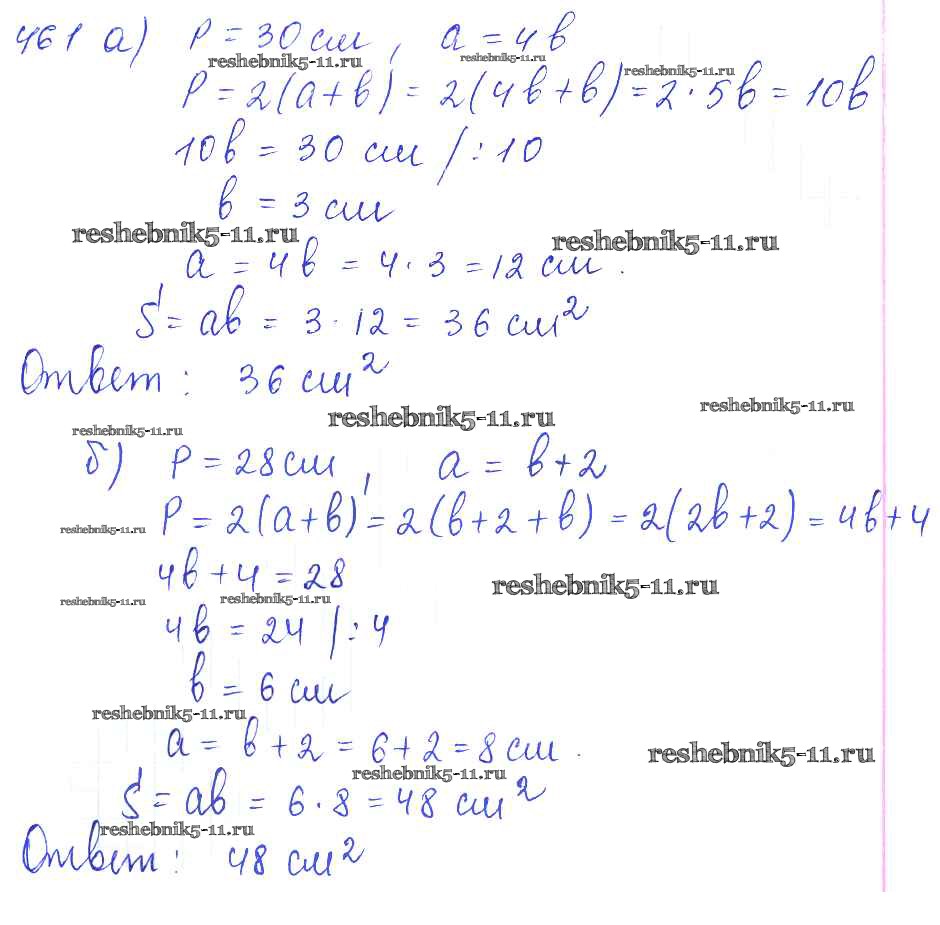 461 а) P = 30 см, a = 4b
reshebnik5-11.ru reshebnik5-11.ru
reshebnik5-11.ru
P = 2(a+b) = 2(4b+b) = 2·5b = 10b
10b = 30 см /:10
b = 3 см
reshebnik5-11.ru reshebnik5-11.ru
a = 4b = 4·3 = 12 см.
S = ab = 3·12 = 36 см²
Ответ: 36 см²
reshebnik5-11.ru reshebnik5-11.ru
reshebnik5-11.ru
б) P = 28 см, a = b+2
P = 2(a+b) = 2(b+2+b) = 2(2b+2) = 4b+4
reshebnik5-11.ru
4b+4 = 28
reshebnik5-11.ru
reshebnik5-11.ru reshebnik5-11.ru
4b = 24 /:4
b = 6 см
reshebnik5-11.ru
a = b+2 = 6+2 = 8 см.
reshebnik5-11.ru
reshebnik5-11.ru
S = ab = 6·8 = 48 см²
reshebnik5-11.ru
Ответ: 48 см²